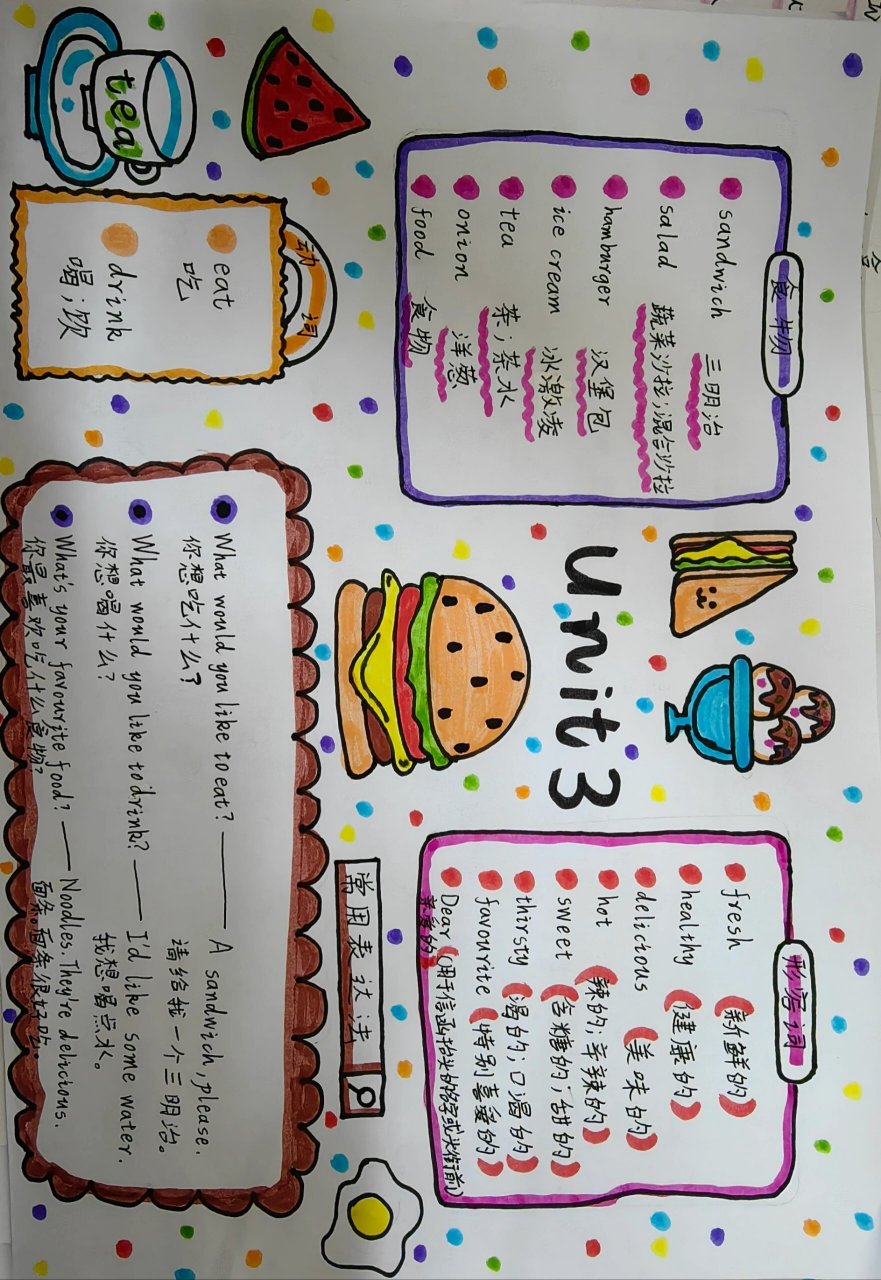 食物
sandwich 三明治
salad 蔬菜沙拉;混合沙拉
hamburger 汉堡包
ice cream 冰激凌
tea 茶;茶水
onion 洋葱
food 食物
Unit 3
形容词
fresh (新鲜的)
healthy (健康的)
delicious (美味的)
hot (辣的;辛辣的)
sweet (含糖的;甜的)
thirsty (渴的;口渴的)
favourite (特别喜爱的)
Dear (用于信函抬头的名字或头衔前)
亲爱的
tea
动词
eat
吃
drink
喝;饮
常用表达法
What would you like to eat? —— A sandwich, please.
你想吃什么? 请给我一个三明治。
What would you like to drink? —— I'd like some water.
你想喝什么? 我想喝点水。
What's your favourite food? —— Noodles. They're delicious.
你最喜欢吃什么食物? 面条。面条很好吃。